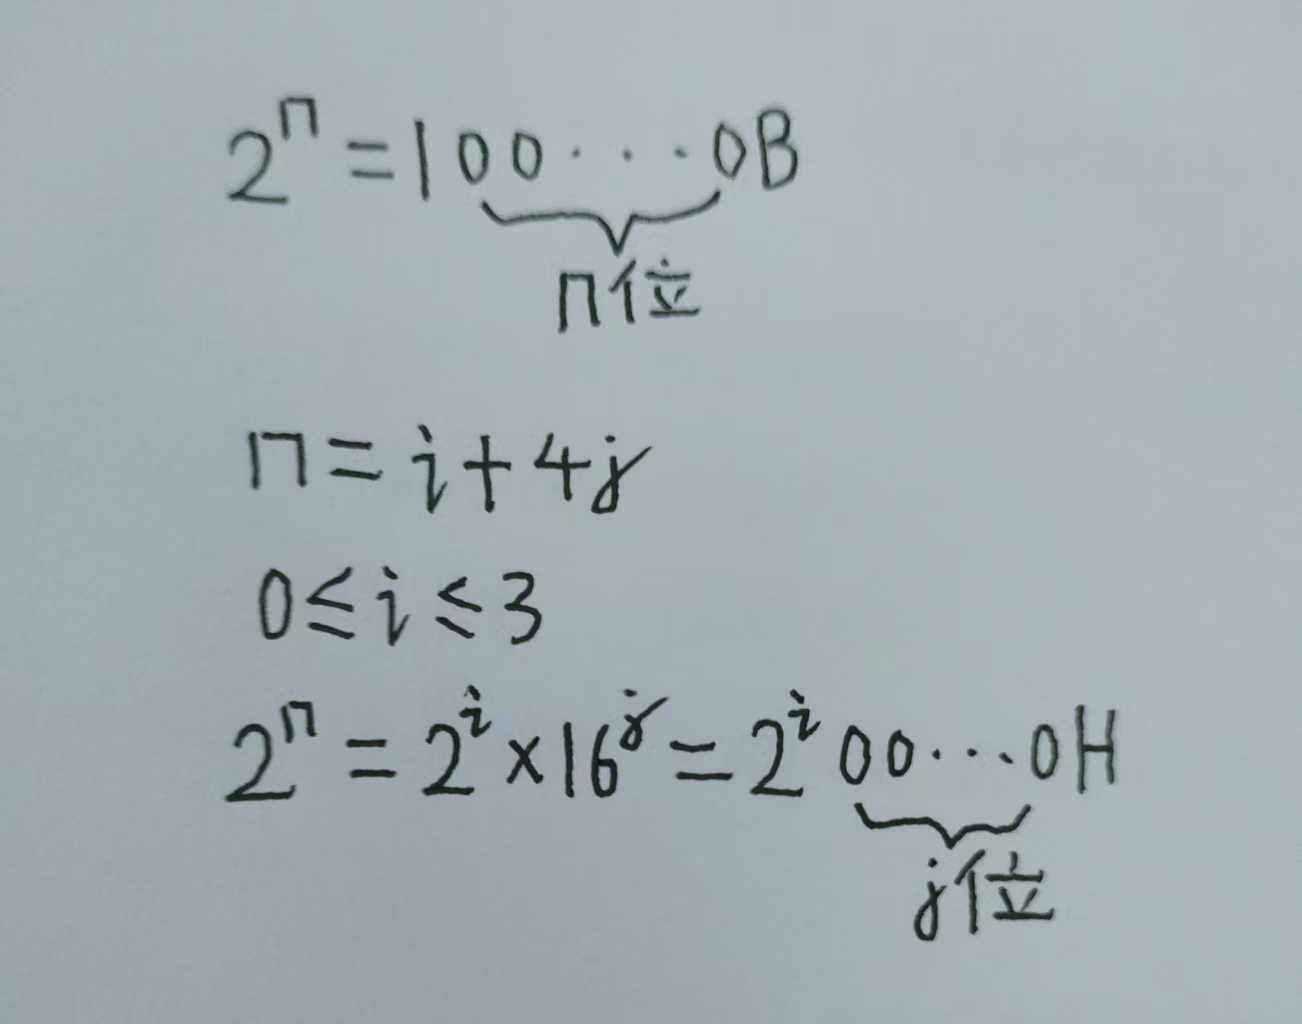 2ⁿ=100···0B
n位
n=i+4j
0≤i≤3
2ⁿ=2ⁱ×16ʲ=2ⁱ00···0H
j位